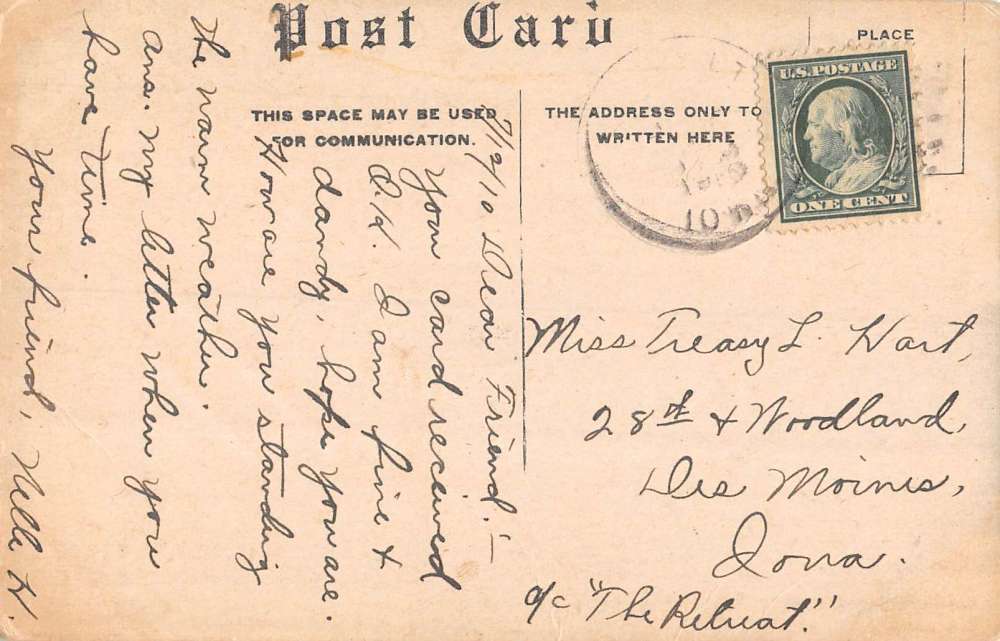 Post Card
PLACE
THIS SPACE MAY BE USED
FOR COMMUNICATION.
THE ADDRESS ONLY TO
WRITTEN HERE
U.S. POSTAGE
ONE CENT
10
7/9/10 Dear Friend:—
Your card received
O.K. I am fine &
dandy, hope you are.
How are you standing
the warm weather.
Ans. my letter when you
have time.
Your friend, Nelle H.
Miss Treasy L. Hart,
28th & Woodland,
Des Moines,
Iowa.
c/o "The Retreat."